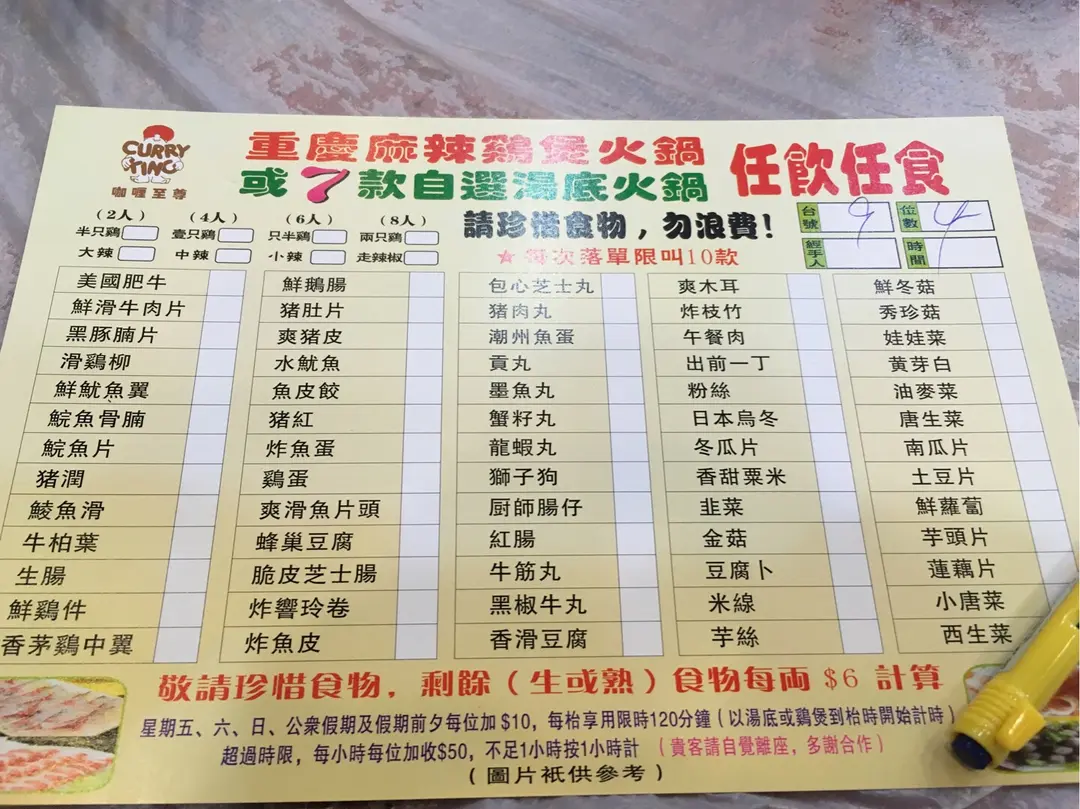 CURRY
KING
咖喱至尊
重慶麻辣鷄煲火鍋
或7款自選湯底火鍋
任飲任食
(2人) (4人) (6人) (8人)
半只鷄 壹只鷄 只半鷄 兩只鷄
大辣 中辣 小辣 走辣椒
請珍惜食物，勿浪費!
★每次落單限叫10款
台號 9 位數 4
經手人 時間
美國肥牛
鮮滑牛肉片
黑豚腩片
滑鷄柳
鮮魷魚翼
鯇魚骨腩
鯇魚片
猪潤
鯪魚滑
牛柏葉
生腸
鮮鷄件
香茅鷄中翼
鮮鵝腸
猪肚片
爽猪皮
水魷魚
魚皮餃
猪紅
炸魚蛋
鷄蛋
爽滑魚片頭
蜂巢豆腐
脆皮芝士腸
炸響玲卷
炸魚皮
包心芝士丸
猪肉丸
潮州魚蛋
貢丸
墨魚丸
蟹籽丸
龍蝦丸
獅子狗
厨師腸仔
紅腸
牛筋丸
黑椒牛丸
香滑豆腐
爽木耳
炸枝竹
午餐肉
出前一丁
粉絲
日本烏冬
冬瓜片
香甜粟米
韭菜
金菇
豆腐卜
米線
芋絲
鮮冬菇
秀珍菇
娃娃菜
黄芽白
油麥菜
唐生菜
南瓜片
土豆片
鮮蘿蔔
芋頭片
蓮藕片
小唐菜
西生菜
敬請珍惜食物，剩餘（生或熟）食物每両 $6 計算
星期五、六、日、公衆假期及假期前夕每位加 $10，每枱享用限時120分鐘（以湯底或鷄煲到枱時開始計時）
超過時限，每小時每位加收$50，不足1小時按1小時計 （貴客請自覺離座，多謝合作）
（圖片衹供參考）